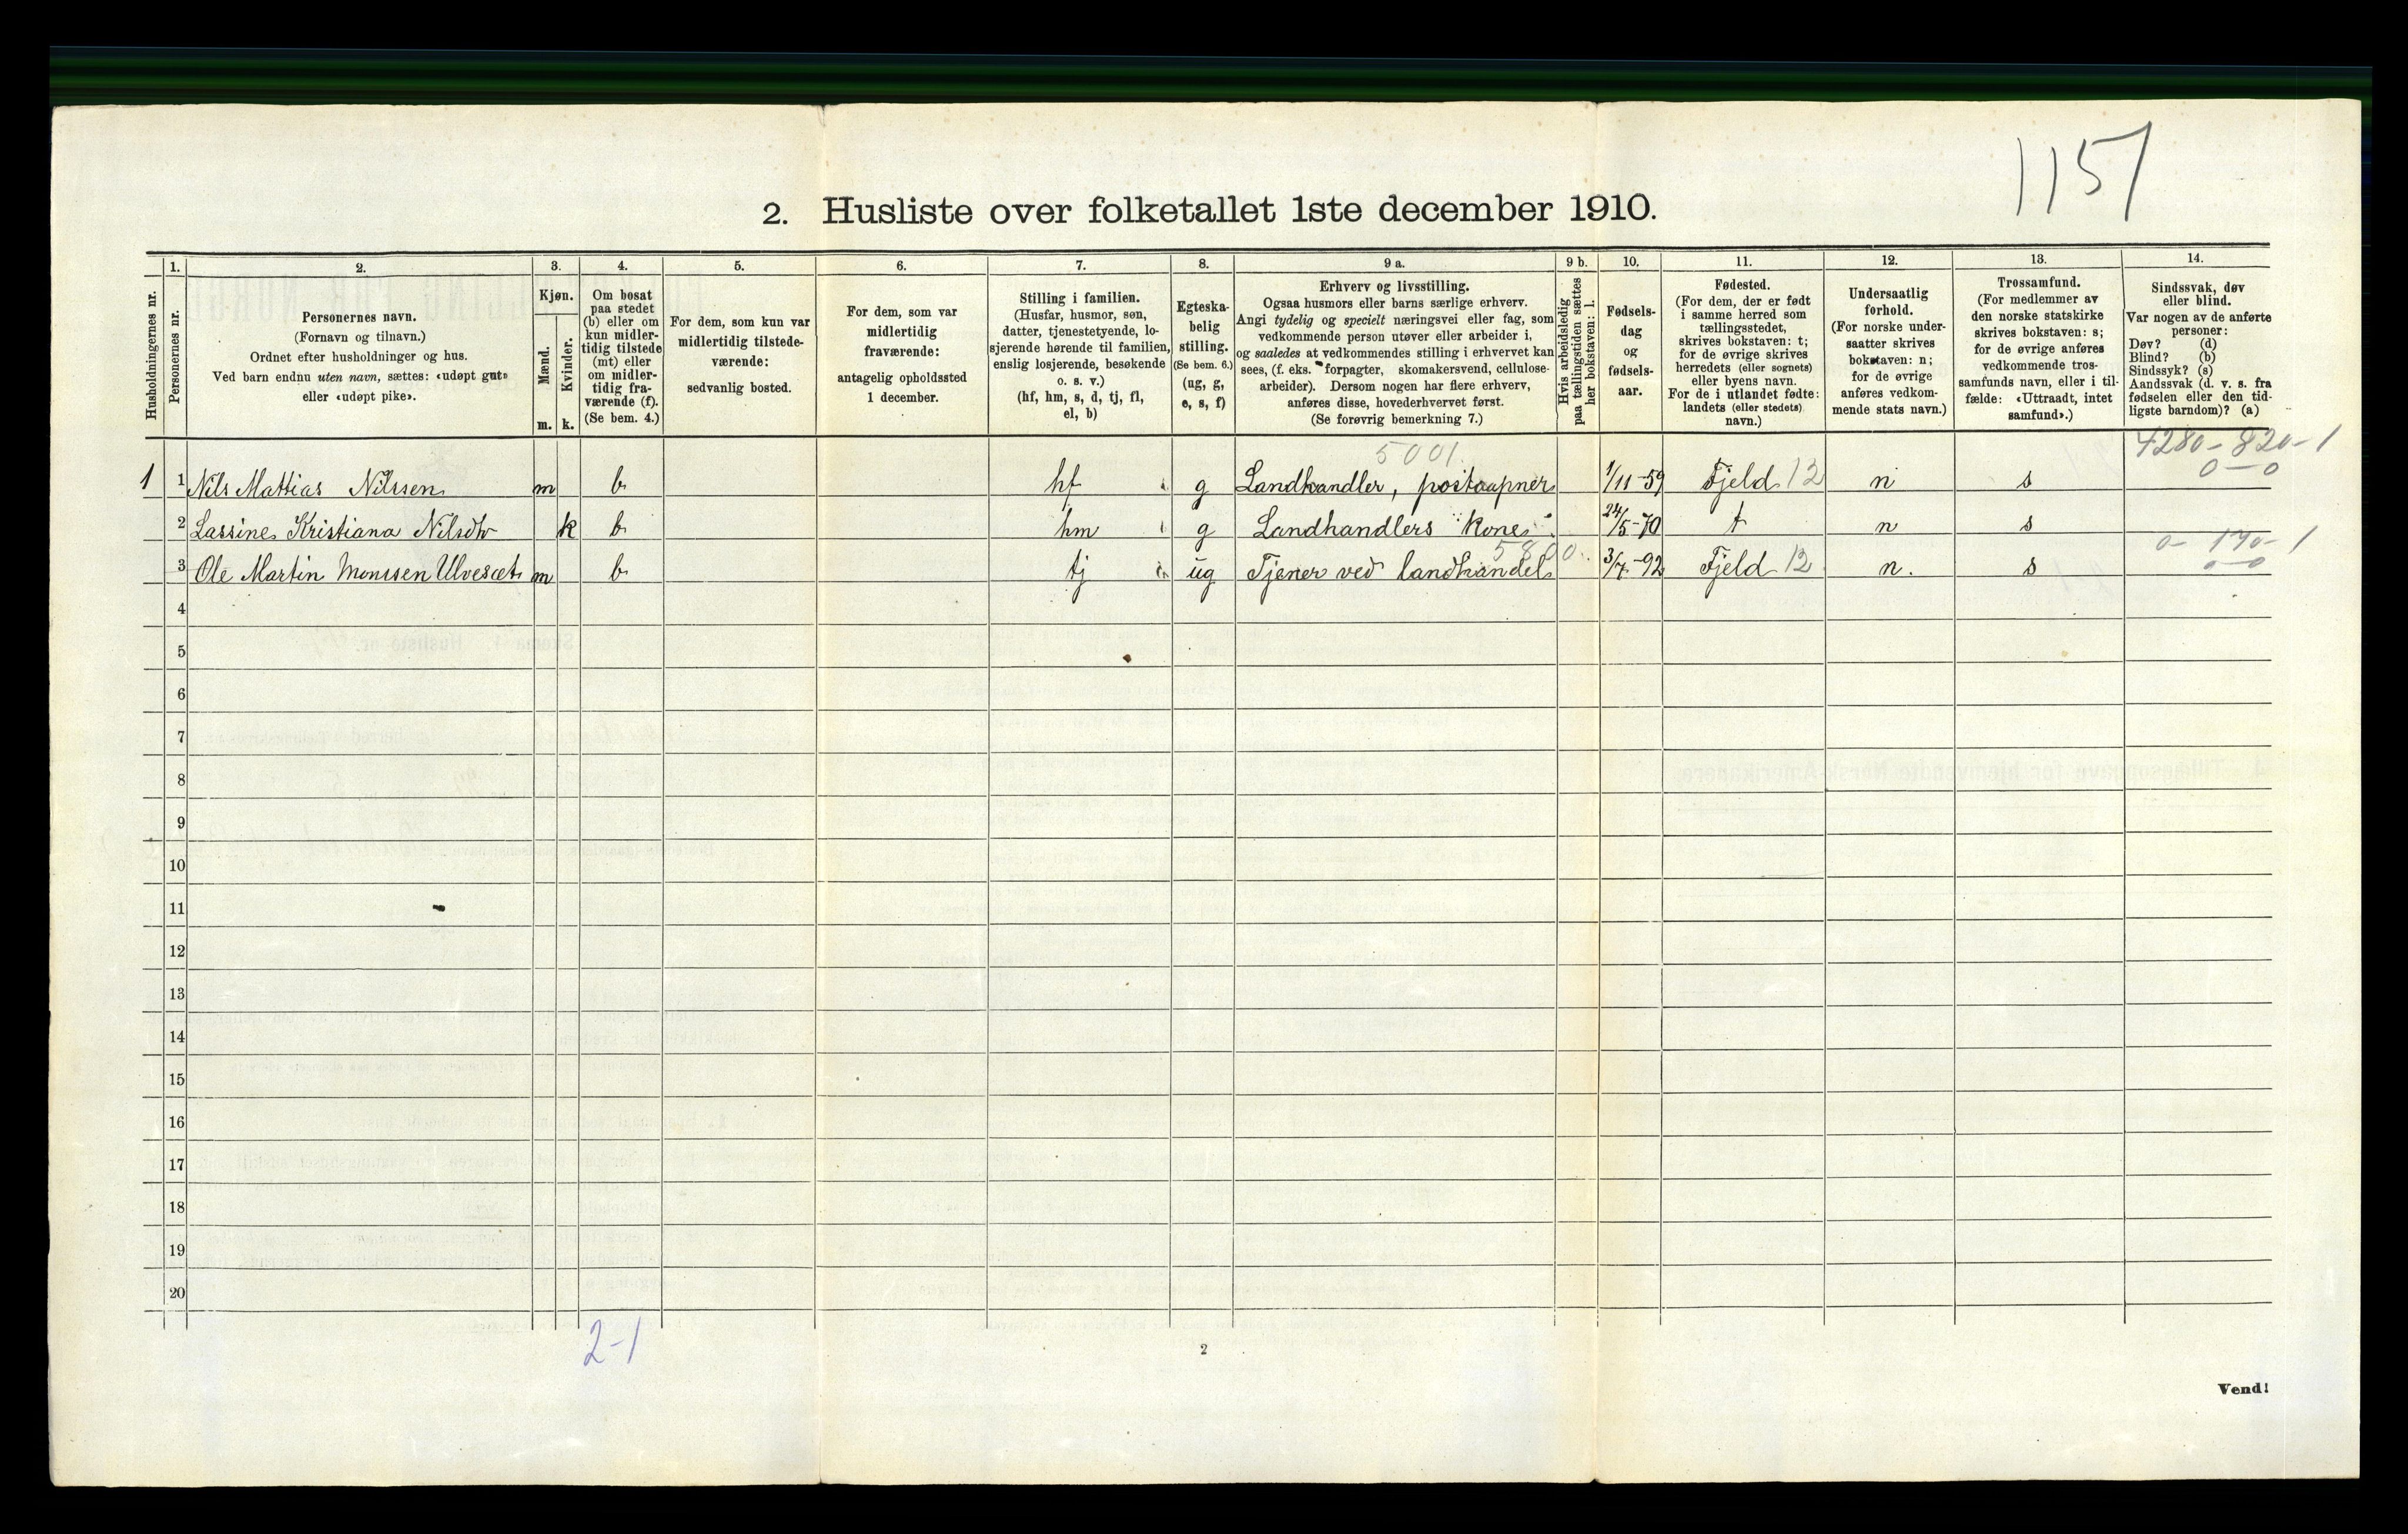 1157
2. Husliste over folketallet 1ste december 1910.
Husholdningernes nr.
1.
Personernes nr.
2.
Personernes navn.
(Fornavn og tilnavn.)
Ordnet efter husholdninger og hus.
Ved barn endnu uten navn, sættes: «udøpt gut»
eller «udøpt pike».
3.
Kjøn.
Mænd.
Kvinder.
m. k.
4.
Om bosat
paa stedet
(b) eller om
kun midler-
tidig tilstede
(mt) eller
om midler-
tidig fra-
værende (f).
(Se bem. 4.)
5.
For dem, som kun var
midlertidig tilstede-
værende:
sedvanlig bosted.
6.
For dem, som var
midlertidig
fraværende:
antagelig opholdssted
1 december.
7.
Stilling i familien.
(Husfar, husmor, søn,
datter, tjenestetyende, lo-
sjerende hørende til familien,
enslig losjerende, besøkende
o. s. v.)
(hf, hm, s, d, tj, fl,
el, b)
8.
Egteska-
belig
stilling.
(Se bem. 6.)
(ug, g,
e, s, f)
9 a.
Erhverv og livsstilling.
Ogsaa husmors eller barns særlige erhverv.
Angi tydelig og specielt næringsvei eller fag, som
vedkommende person utøver eller arbeider i,
og saaledes at vedkommendes stilling i erhvervet kan
sees, (f. eks. forpagter, skomakersvend, cellulose-
arbeider). Dersom nogen har flere erhverv,
anføres disse, hovederhvervet først.
(Se forøvrig bemerkning 7.)
9 b.
Hvis arbeidsledig
paa tællingstiden sættes
her bokstaven: l.
10.
Fødsels-
dag
og
fødsels-
aar.
11.
Fødested.
(For dem, der er født
i samme herred som
tællingsstedet,
skrives bokstaven: t;
for de øvrige skrives
herredets (eller sognets)
eller byens navn.
For de i utlandet fødte:
landets (eller stedets)
navn.)
12.
Undersaatlig
forhold.
(For norske under-
saatter skrives
bokstaven: n;
for de øvrige
anføres vedkom-
mende stats navn.)
13.
Trossamfund.
(For medlemmer av
den norske statskirke
skrives bokstaven: s;
for de øvrige anføres
vedkommende tros-
samfunds navn, eller i til-
fælde: «Uttraadt, intet
samfund».)
14.
Sindssvak, døv
eller blind.
Var nogen av de anførte
personer:
Døv? (d)
Blind? (b)
Sindssyk? (s)
Aandssvak (d. v. s. fra
fødselen eller den tid-
ligste barndom)? (a)
5001. 4280-820-1
1 1 Nils Mattias Nilssen m b hf g Landhandler, postaapner 1/11-59 Fjeld 12 n s 0-0
2 Lassine Kristiana Nilsdtr k b hm g Landhandlers kone 24/5-70 t n s
5800. 0-170-1
3 Ole Martin Monssen Ulveset m b tj ug Tjener ved landhandel 3/7-92 Fjeld 12 n. s 0-0
4
5
6
7
8
9
10
11
12
13
14
15
16
17
18
19
20
2-1
2
Vend!